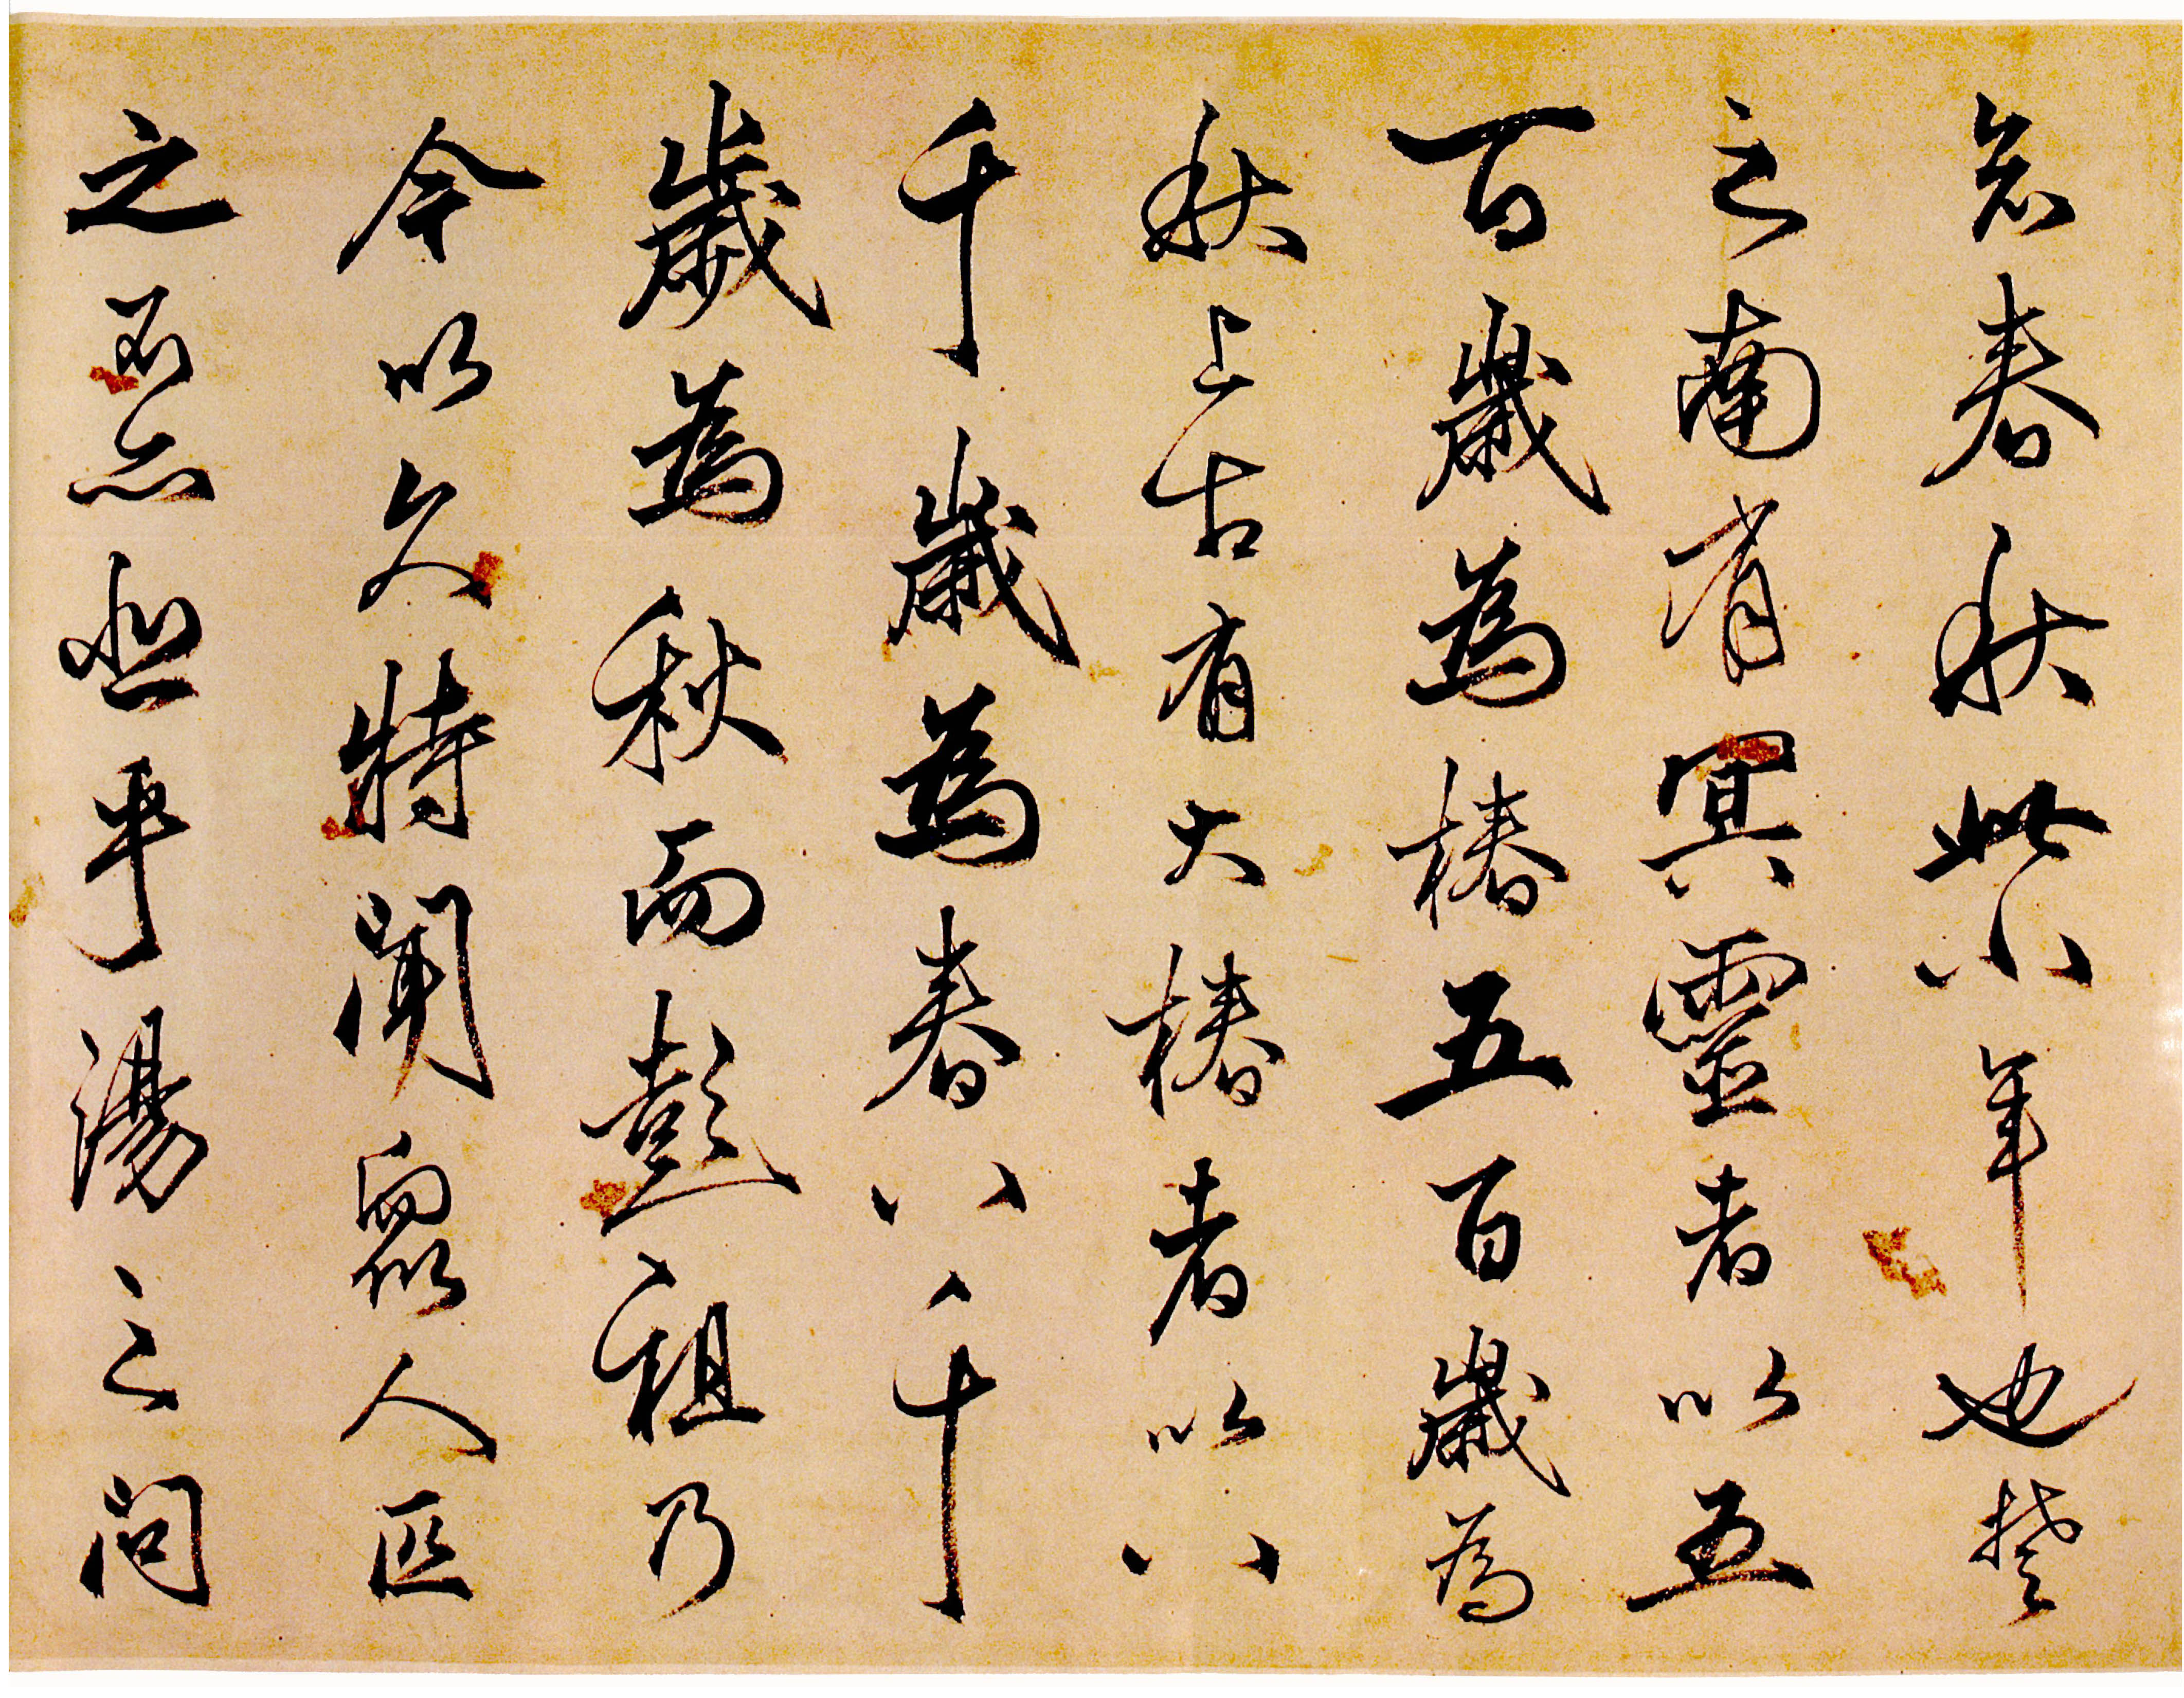 知春秋此小年也楚
之南有冥靈者以五
百歲為椿五百歲為
秋上古有大椿者以八
千歲為春八千
歲為秋而彭祖乃
今以久特聞眾人匹
之不亦悲乎湯之問